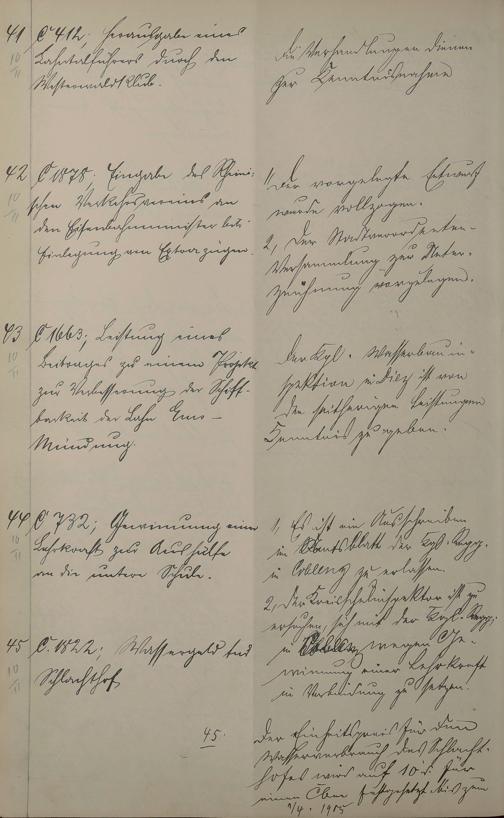 41 C 412; Herausgabe eines
10/11 Lahntalführers durch den
Westerwaldklub.
Die Verhandlungen dienen
zur Kenntnisnahme
42 C 1878; Eingabe des Rheini-
10/11 schen Verkehrsvereins an
den Eisenbahnminister betr.
Einlegung von Extrazügen.
1, Der vorgelegte Entwurf
wurde vollzogen.
2, Der Stadtverordneten-
Versammlung zur Unter-
zeichnung vorzulegen.
43 C 1663; Leistung eines
10/11 Beitrages zu einem Projekt
zur Verbesserung der Schiff-
barkeit der Lahn Ems-
Mündung.
Der Kgl. Wasserbauin-
spektion in Diez ist von
den seitherigen Leistungen
Kenntnis zu geben.
44 C 732; Gewinnung einer
10/11 Lehrkraft zur Aushülfe
an die untere Schule.
1, Es ist ein Ausschreiben
im Amtsblatt der Kgl. Regg.
in Coblenz zu erlassen.
2, Der Kreisschulinspektor ist zu
ersuchen, sich mit der Kgl. Regg.
in Coblenz wegen Ge-
winnung einer Lehrkraft
in Verbindung zu setzen.
45 C. 1822; Wassergeld
10/11 Schlachthof
45.
Der Einheitspreis für den
Wasserverbrauch des Schlacht-
hofes wird auf 10 für
einen Cbm festgesetzt bis zum
1/4. 1905